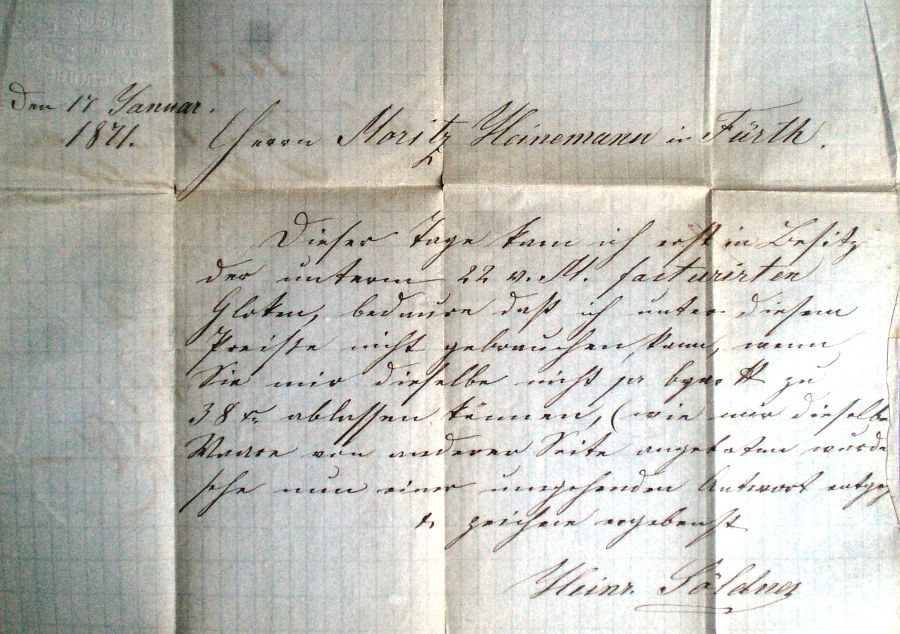 Den 17 Januar.
1871.
Herrn Moritz Heinemann in Fürth.
Dieser Tage kam ich erst in Besitz
der unterm 22 v. M. facturirten
Gloken, bedaure daß ich unter diesem
Preiße nicht gebrauchen kann, wenn
Sie mir dieselbe nicht pr zu
38 ablassen können, (wie mir dieselbe
Waare von anderer Seite angeboten wurde
sehe nun einer umgehenden Antwort
& zeichne ergebenst
Heinr. Söldner